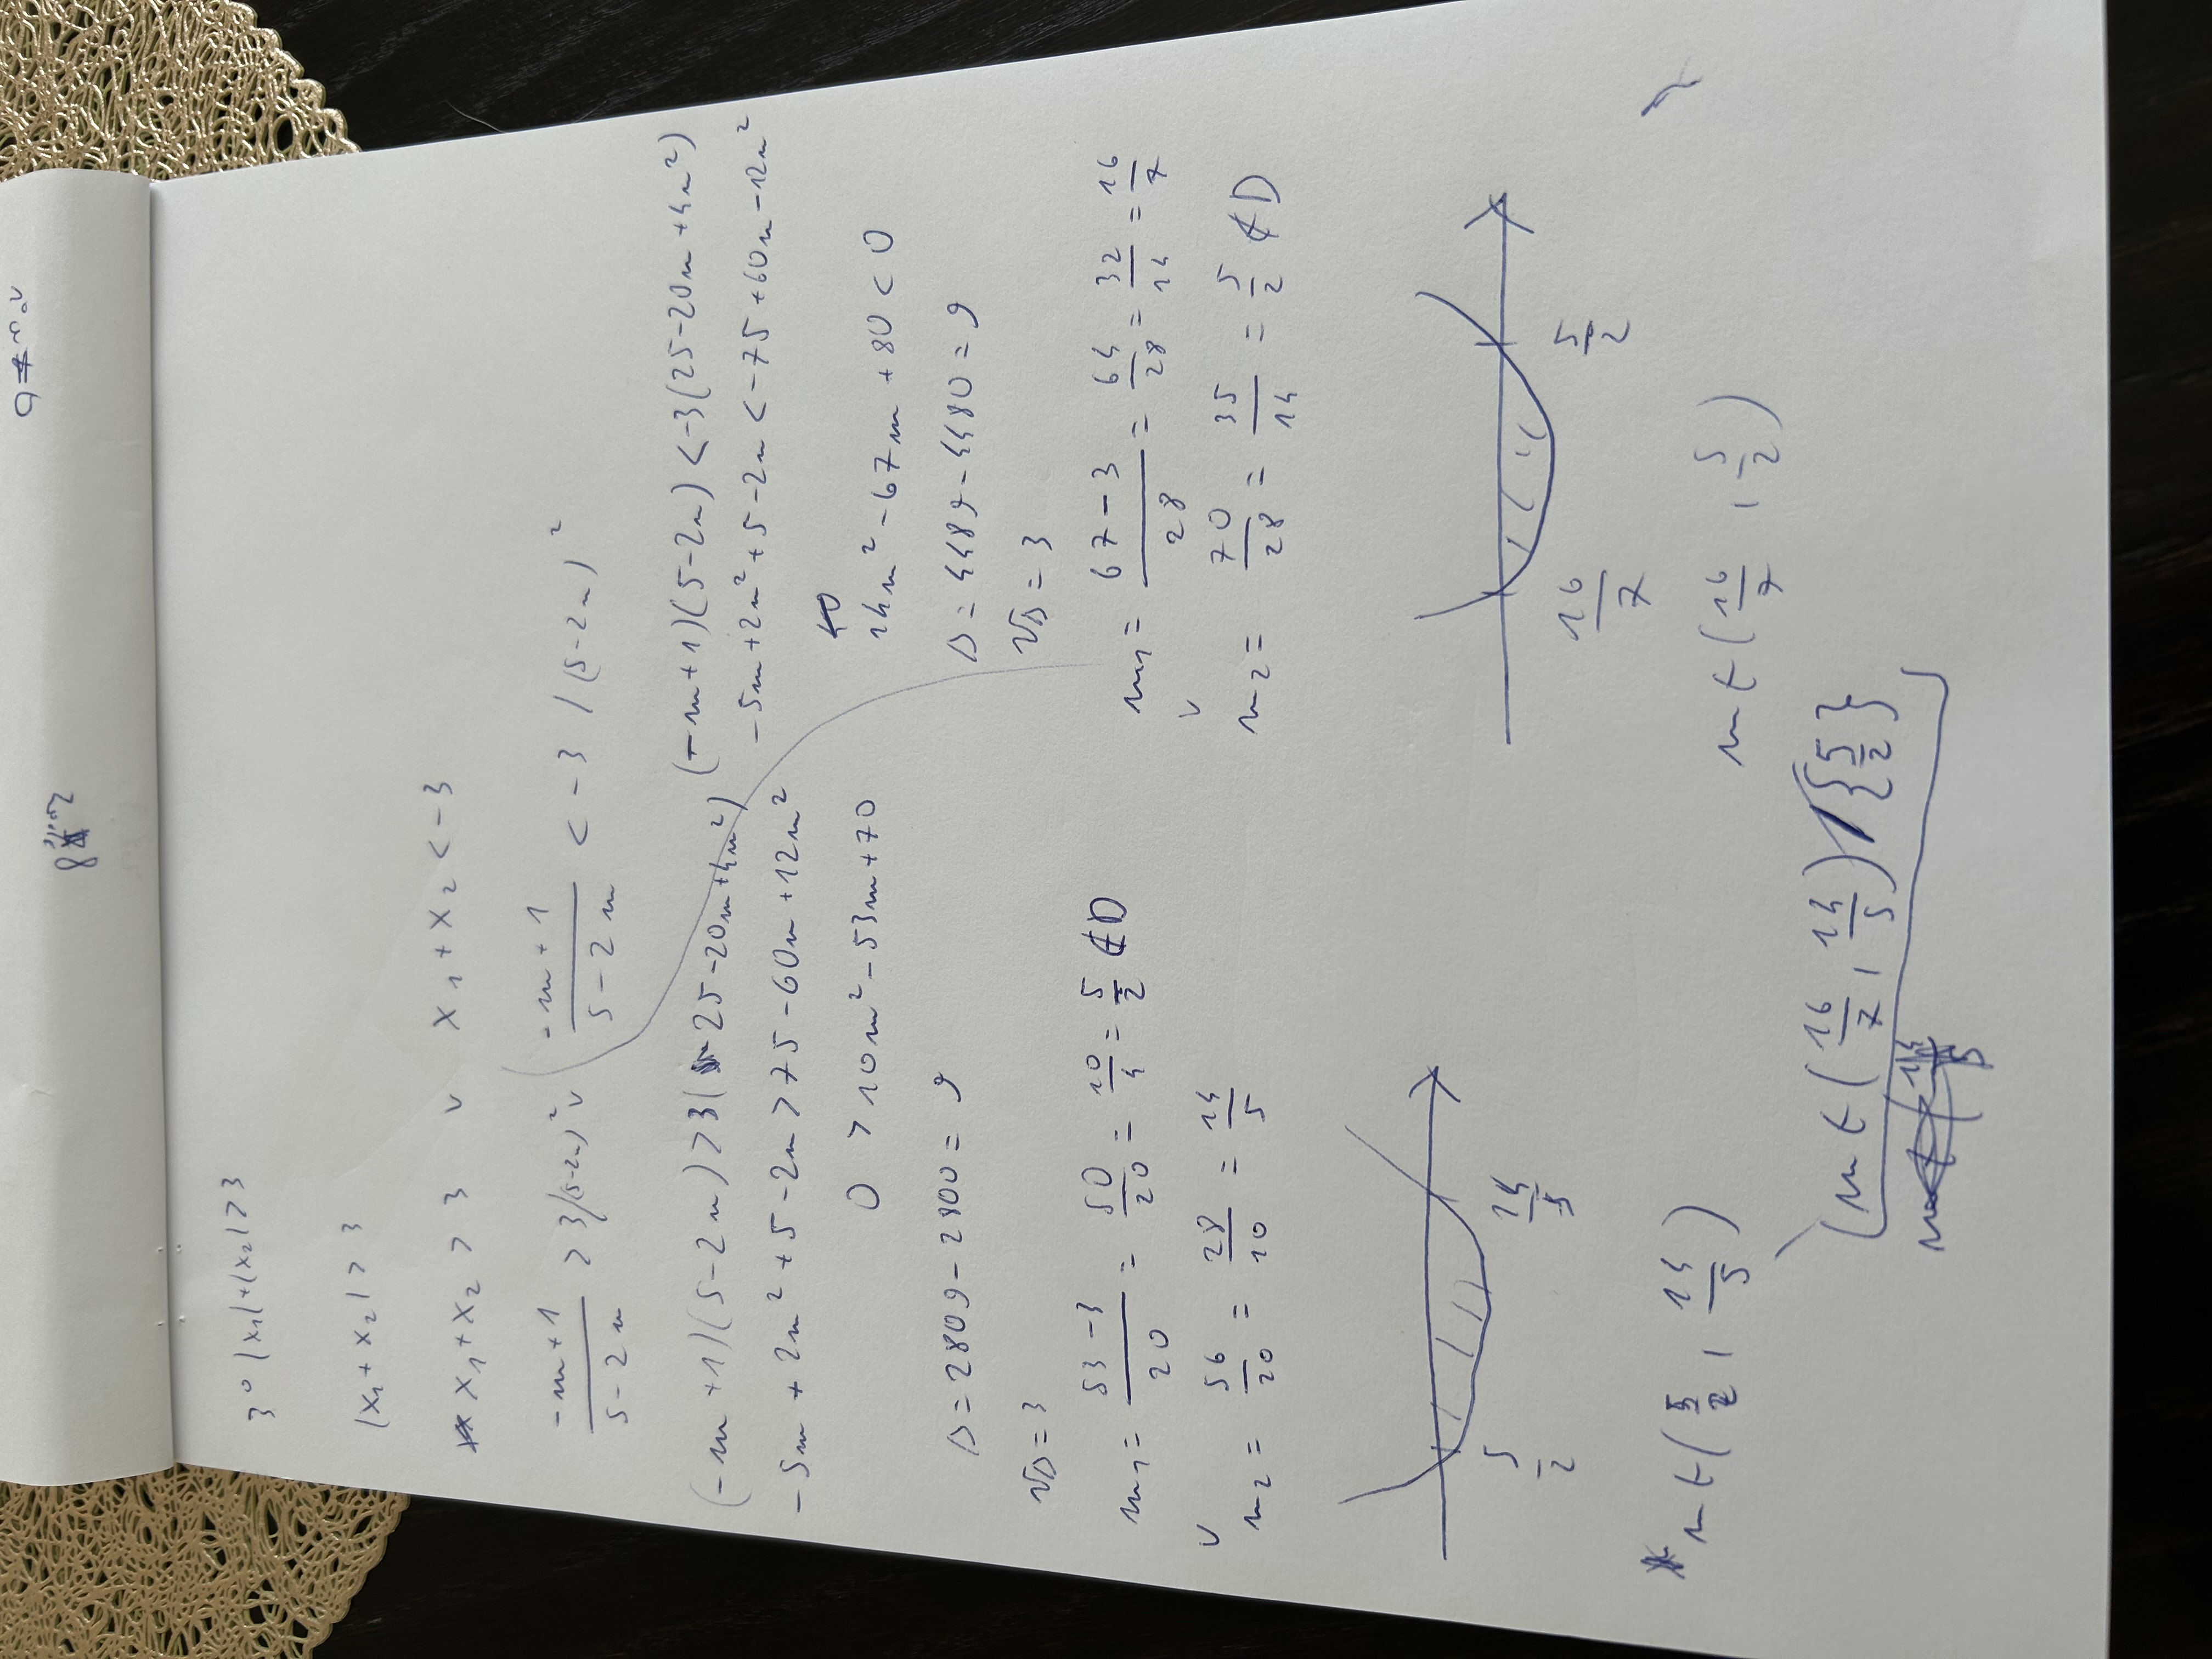 3° |x₁|+|x₂|>3
|x₁+x₂|>3
x₁+x₂>3 ∨ x₁+x₂<-3
(-m+1)/(5-2m) >3 /(5-2m)² ∨ (-m+1)/(5-2m) <-3 /(5-2m)²
(-m+1)(5-2m)>3(25-20m+4m²)
-5m+2m²+5-2m>75-60m+12m²
0>10m²-53m+70
Δ=2809-2800=9
√Δ=3
m₁= (53-3)/20 = 50/20 = 10/4 = 5/2 ∉D
∨
m₂= 56/20 = 28/10 = 14/5
5/2 14/5
m∈(5/2, 14/5)
(-m+1)(5-2m)<-3(25-20m+4m²)
-5m+2m²+5-2m<-75+60m-12m²
14m²-67m+80<0
Δ=4489-4480=9
√Δ=3
m₁= (67-3)/28 = 64/28 = 32/14 = 16/7
∨
m₂= 70/28 = 35/14 = 5/2 ∉D
16/7 5/2
m∈(16/7, 5/2)
m∈(16/7, 14/5)\{5/2}